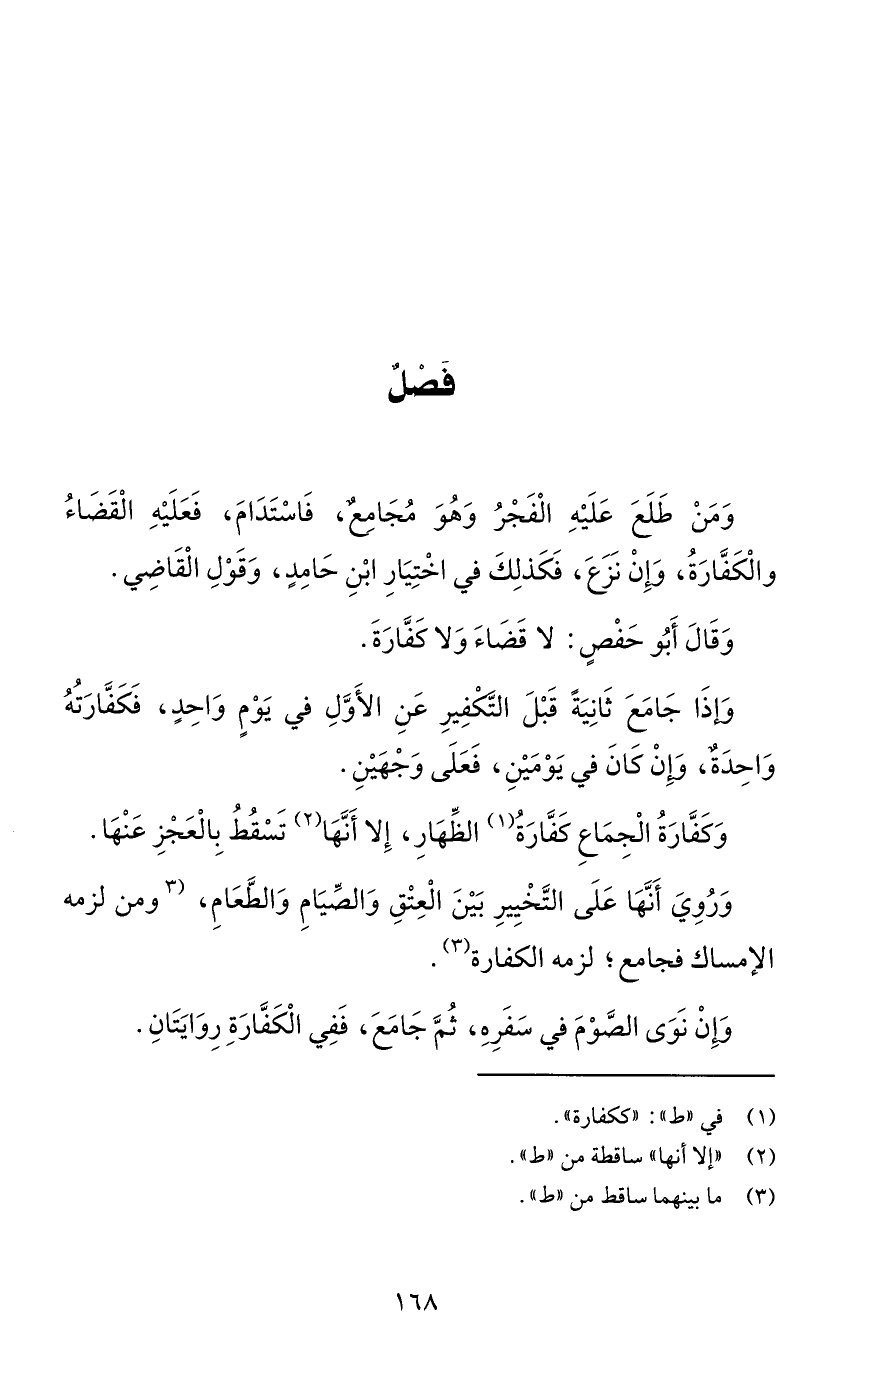 فَصْلٌ
وَمَنْ طَلَعَ عَلَيْهِ الْفَجْرُ وَهُوَ مُجَامِعٌ، فَاسْتَدَامَ، فَعَلَيْهِ الْقَضَاءُ
والْكَفَّارَةُ، وَإِنْ نَزَعَ، فَكَذلِكَ في اخْتِيَارِ ابْنِ حَامِدٍ، وَقَوْلِ الْقَاضِي.
وَقَالَ أَبُو حَفْصٍ: لا قَضَاءَ وَلا كَفَّارَةَ.
وَإِذَا جَامَعَ ثَانِيَةً قَبْلَ التَّكْفِيرِ عَنِ الأَوَّلِ في يَوْمٍ وَاحِدٍ، فَكَفَّارَتُهُ
وَاحِدَةٌ، وَإِنْ كَانَ في يَوْمَيْنِ، فَعَلَى وَجْهَيْنِ.
وَكَفَّارَةُ الْجِمَاعِ كَفَّارَةُ(١) الظِّهَارِ، إِلا أَنَّهَا(٢) تَسْقُطُ بِالْعَجْزِ عَنْهَا.
وَرُوِيَ أَنَّهَا عَلَى التَّخْيِيرِ بَيْنَ الْعِتْقِ وَالصِّيَامِ وَالطَّعَامِ، (٣ومن لزمه
الإمساك فجامع؛ لزمه الكفارة(٣).
وَإِنْ نَوَى الصَّوْمَ في سَفَرِهِ، ثُمَّ جَامَعَ، فَفِي الْكَفَّارَةِ رِوَايَتَانِ.
(١) في «ط»: «ككفارة».
(٢) «إلا أنها» ساقطة من «ط».
(٣) ما بينهما ساقط من «ط».
١٦٨